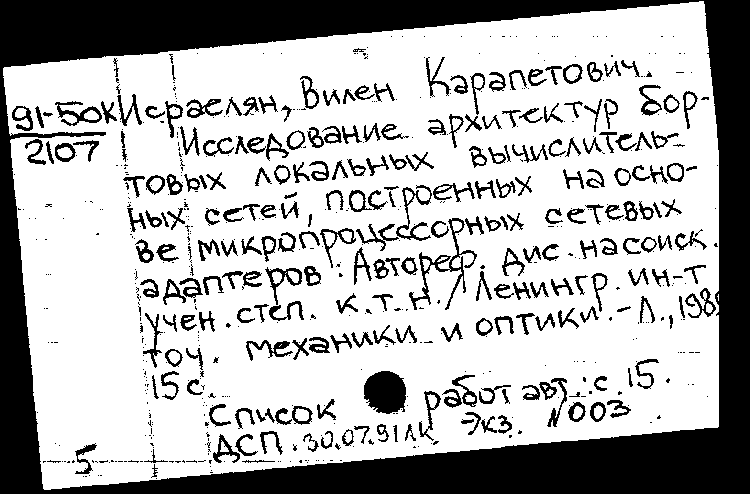 91-50к Исраелян, Вилен Карапетович.
2107 Исследование архитектур бор-
товых локальных вычислитель-
ных сетей, построенных на осно-
ве микропроцессорных сетевых
адаптеров : Автореф. дис. на соиск.
учен. степ. к.т.н. / Ленингр. ин-т
точ. механики и оптики. - Л.,
15 с.
Список работ авт.: с. 15.
ДСП. 30.07.91 Экз. N003
5